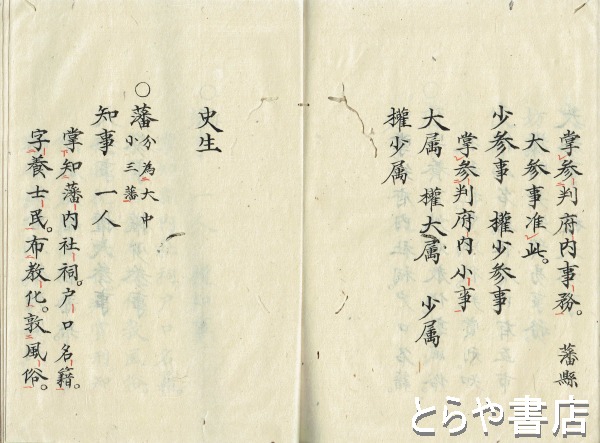 掌参判府内事務。 藩縣
大参事准此。
少参事 權少参事
掌参判府内小事
大属 權大属 少属
權少属
史生
○藩 分為大中小三藩
知事 一人
掌知藩内社祠。戸口名籍。
字養士民。布教化。敦風俗。
とらや書店